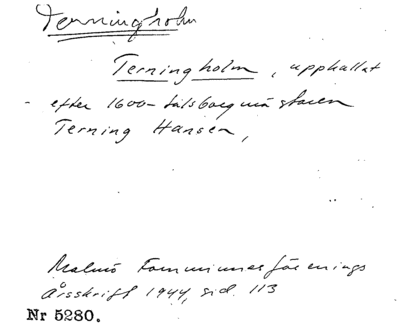 Terningholm
Terningholm, uppkallat
efter 1600-talsborgmästaren
Terning Hansen,
Malmö Fornminnesförenings
Årsskrift 1944, sid. 113
Nr 5280.